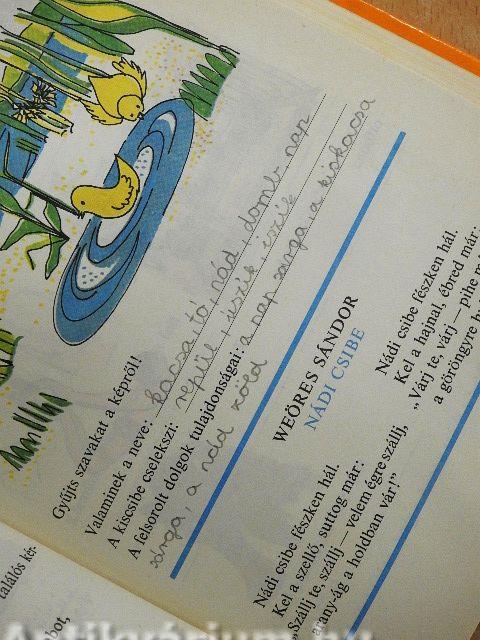 Gyűjts szavakat a képről!
Valaminek a neve: kacsa, tó, nád, domb, nap
A kiscsibe cselekszi: repül, úszik, iszik
A felsorolt dolgok tulajdonságai: a nap sárga, a kiskacsa
sárga, a nád zöld
WEÖRES SÁNDOR
NÁDI CSIBE
Nádi csibe fészken hál.
Kel a szellő, suttog már:
„Szállj te, szállj — velem égre szállj,
arany-ág a holdban vár!”
Nádi csibe fészken hál.
Kel a hajnal, ébred már:
„Várj te, várj — pihe
a göröngyre
találós kér-
bot,
Antikvárium.hu